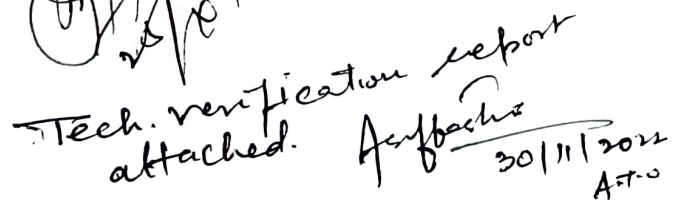 Tech. verification report
attached.
30/11/2022
A.T.O